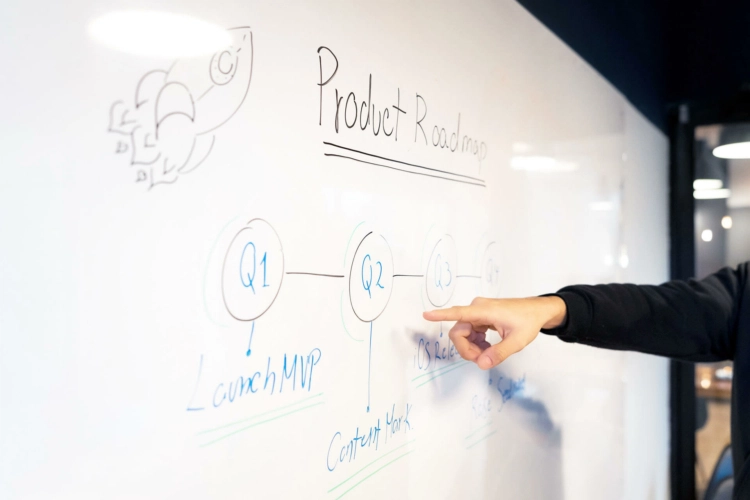 Product Roadmap
Q1
Q2
Q3
Q4
Launch MVP
Content Mark
iOS